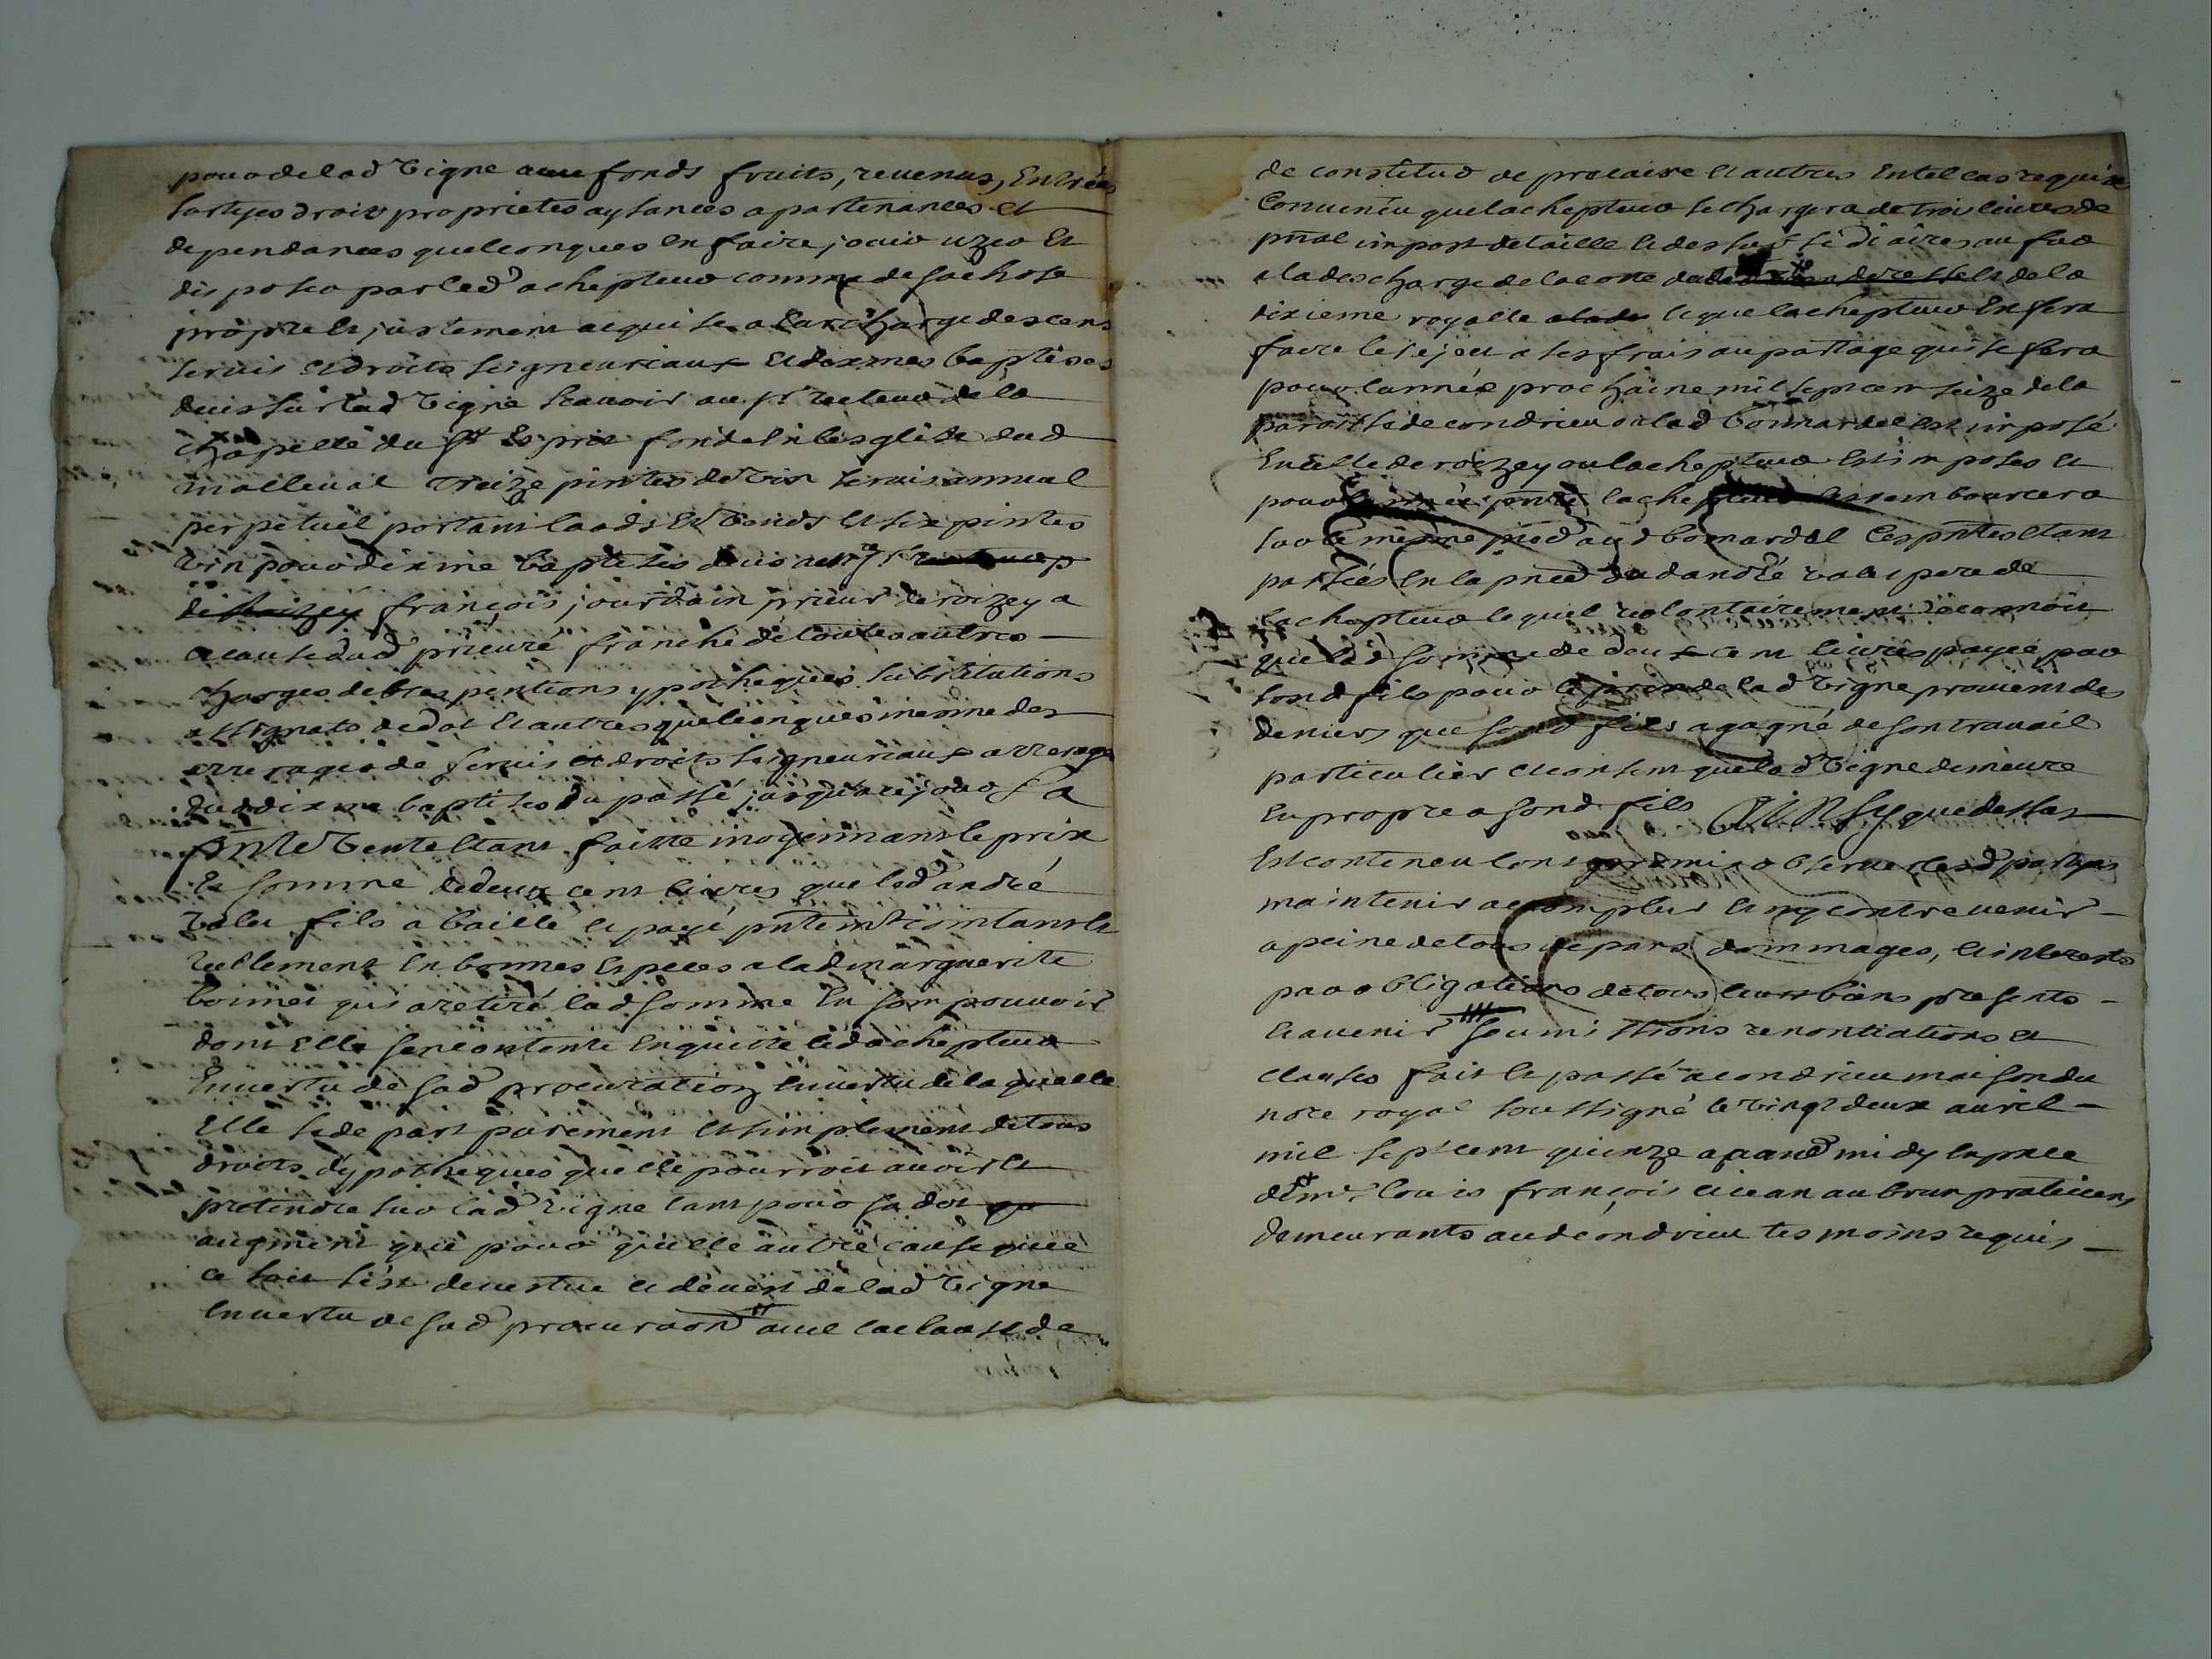 pour de lad vigne avec fonds fruits, revenus, Entrées
sortyes droits proprietes aysances apartenances et
dependances quelconques en faire jouir uzer Et
disposer par led achepteur comme de sa chose
propre et justement acquise a la charge des cens
servis et droits seigneuriaux et dixmes baptises
deus sur lad vigne scavoir au sr recteur de la
chapelle du st Esprit fonde En lesglise dud
malleval treize pintes de vin servis annuel
perpetuel portant laods Et vends et six pintes
vin pour dixme baptises deus a
françois jourdain prieur de roizey a
cause dud prieuré franche de toutes autres
charges debtes pentions ypotheques substitutions
assignats de dot et autres quelconques mesme des
arrerages de servis et droits seigneuriaux arrerages
dud dixme baptises du passé jusqu'a ce jour La
pnte vente etant faitte moyennant le prix
Et somme de deux cent livres que led andré
valu fils a baillé et payé pntement comtant et
reellement en bonnes Especes a lad marguerite
bonnet qui a retiré lad somme En son pouvoir
dont Elle sen contente En quitte led achepteur
En vertu de sad procuration En vertu de laquelle
Elle se depart purement et simplement de tous
droits d'ypotheques quelle pourroit avoir et
pretendre sur lad vigne tant pour sa dot
augment que pour quelle autre cause que
ce soit s'est devestue et devest de lad vigne
En vertu de sad procuraon avec la clause de
de constitut de precaire et autres En tel cas requise
Conveneu que lachepteur se chargera de trois livres de
pnal impost de taille et des subsidiaires au fur
a la descharge de la cotte et de la
dixieme royalle et que lachepteur En fera
faire le rejet a ses frais au partage qui se fera
pour lannée prochaine mil sept cent seize de la
paroisse de condrieu ou lad bonnardel est imposé
En celle de roizey ou lachepteur Est imposes et
pour lannée pnte lachepteur rembourcera
sur le mesme pied aud bonnardel Ces pntes etant
passées En la pnce dud andré valet pere de
lachepteur lequel volontairement reconnoit
que lad somme de deux cent livres payée par
sond fils pour le prix de lad vigne provient des
deniers que sond fils a gagné de son travail
particulier et consent que lad vigne demeure
En propre a sond fils AINSy que dessus
Est conteneu lont promis observer lesd partyes
maintenir accomplir et ny contrevenir
a peine de tous depans dommages, et interests
par obligations de tous leurs biens presents
et avenir soumissions renontiations et
clauses fait et passé a condrieu maison du
nore royal soussigné le vingt deux avril
mil sept cent quinze avand midy En pnce
de mr louis françois et jean aubrun praticiens
demeurants aud condrieu tesmoins requis